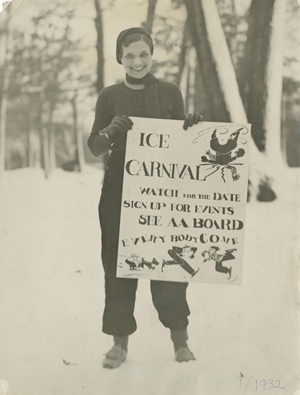 ICE
CARNIVAL
WATCH FOR THE DATE
SIGN UP FOR EVENTS
SEE AA BOARD
EVERYBODY COME
1932